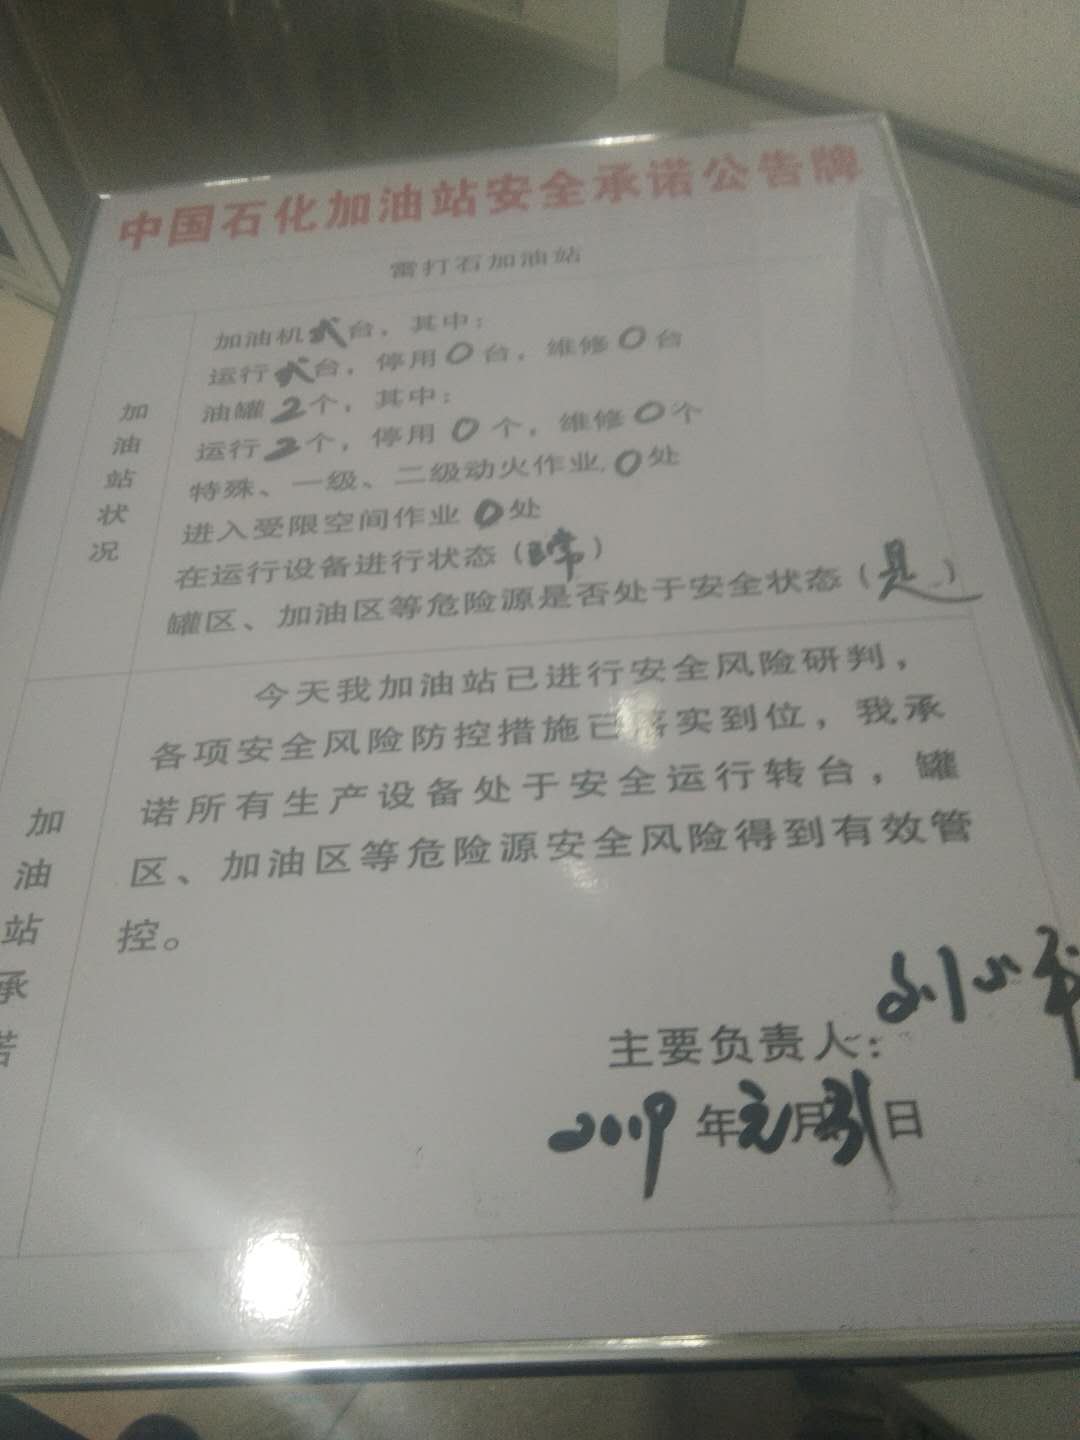 中国石化加油站安全承诺公告牌
雷打石加油站
加油站状况
加油机 台，其中：
运行 台，停用0台，维修0台
油罐2个，其中：
运行2个，停用0个，维修0个
特殊、一级、二级动火作业,0处
进入受限空间作业0处
在运行设备进行状态（正常）
罐区、加油区等危险源是否处于安全状态（是）
加油站承诺
今天我加油站已进行安全风险研判，
各项安全风险防控措施已落实到位，我承
诺所有生产设备处于安全运行转台，罐
区、加油区等危险源安全风险得到有效管
控。
主要负责人：刘小平
2019年元月31日